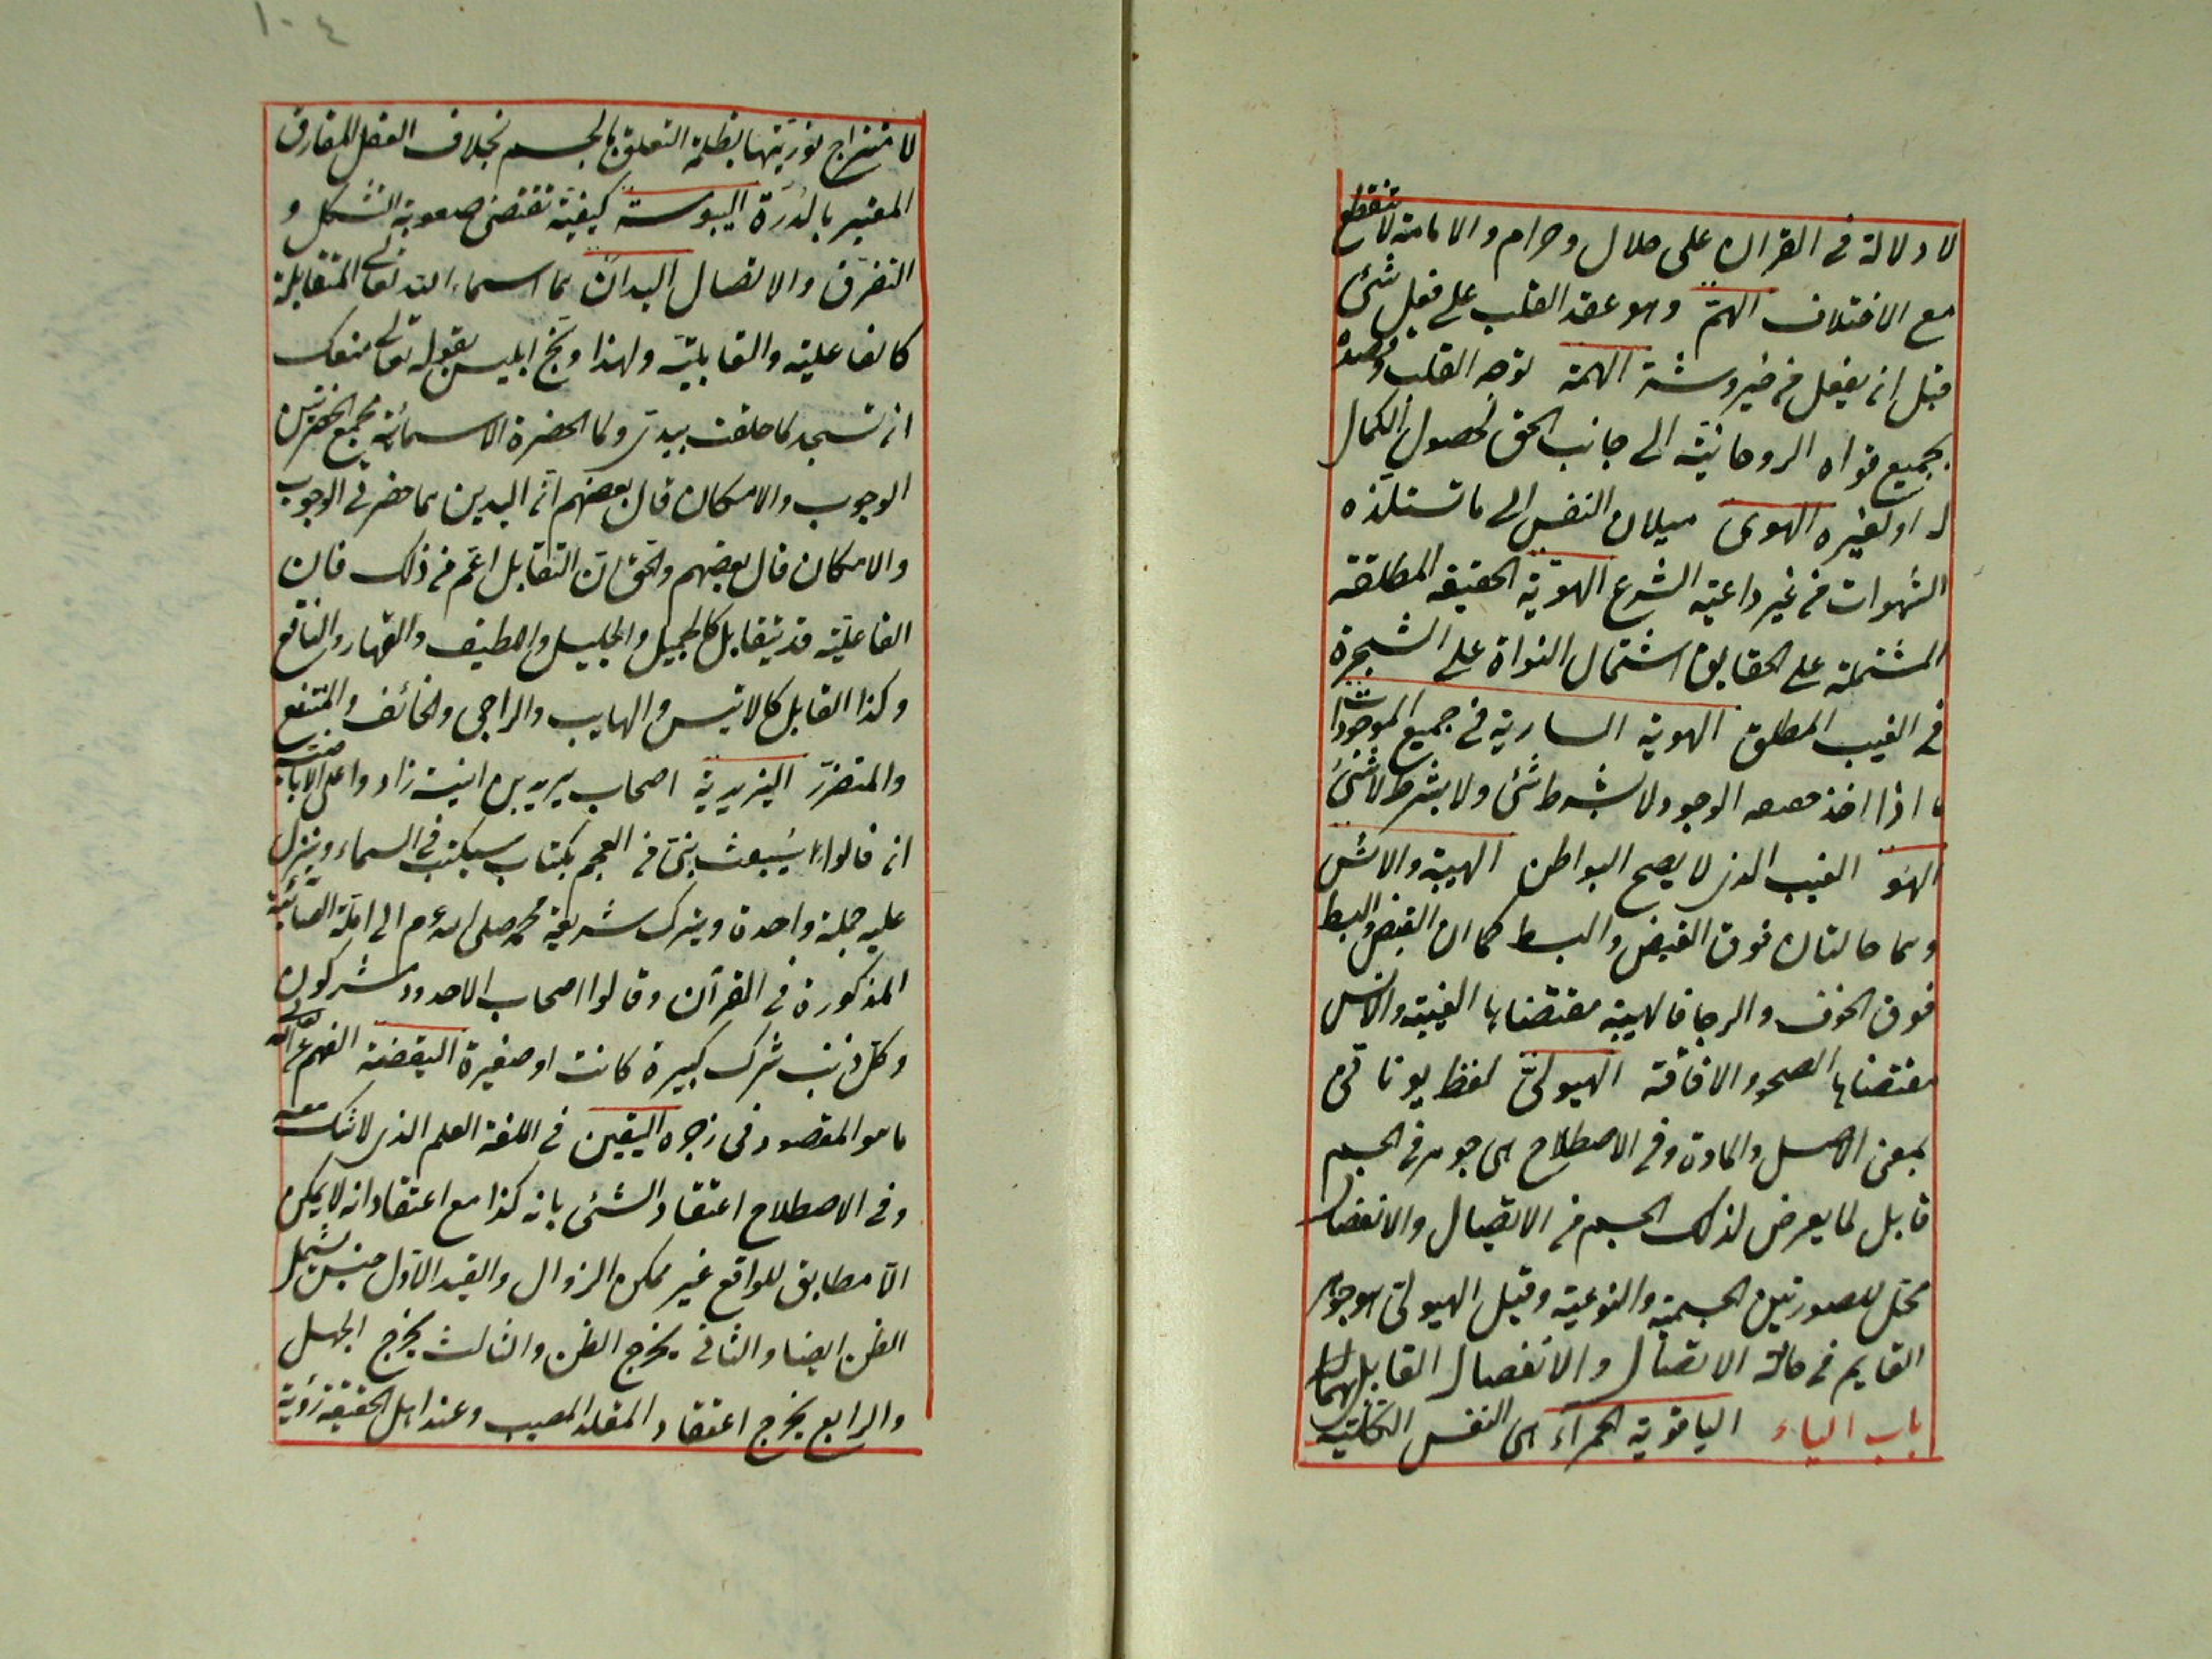 لا دلالة في القران على حلال وحرام والامامة لا تنقطع
مع الاختلاف الهم وهو عقد القلب على فعل شئ
قبل ان يفعل من خير وشر الهمة توجه القلب وقصده
بجميع قواه الروحانية الى جانب الحق لحصول الكمال
له او لغيره الهوى ميلان النفس الى ما تستلذه
الشهوات من غير داعية الشرع الهوية الحقيقة المطلقة
المشتملة على الحقايق اشتمال النواة على الشجرة
في الغيب المطلق الهوية السارية في جميع الموجودات
ما اذا اخذ حقيقة الوجود لا بشرط شئ ولا بشرط لا شئ
الهو الغيب الذى لا يصح البواطن الهيبة والانس
وهما حالتان فوق القبض والبسط كما ان القبض والبسط
فوق الخوف والرجا فالهيبة مقتضاها الغيبة والانس
مقتضاها الصحو والافاقة الهيولى لفظ يونانى
بمعنى الاصل والمادة وفي الاصطلاح هى جوهر في الجسم
قابل لما يعرض لذلك الجسم من الاتصال والانفصال
محل للصورتين الجسمية والنوعية وقيل الهيولى هو جوهر
القايم في حالة الاتصال والانفصال القابل لهما
باب الياء الياقوتة الحمرآء هى النفس الكلية
١٠٤
لامتزاج نوريتها بظلمة التعلق بالجسم بخلاف العقل المفارق
المعبر بالدرة اليبوسة كيفية تقتضى صعوبة الشكل و
التفرق والاتصال اليدان هما اسماء الله تعالى المتقابلة
كالفاعلية والقابلية ولهذا وبخ ابليس بقوله تعالى منعك
ان تسجد لما خلقت بيدى ولما الحضرة الاسمائية مجمع الحضرتين
الوجوب والامكان قال بعضهم ان اليدين هما حضرتي الوجوب
والامكان قال بعضهم والحق ان التقابل اعم من ذلك فان
الفاعلية قد يتقابل كالجميل والجليل واللطيف والقهار والنافع
وكذا القابل كالانيس والهايب والراجى والخائف والمنتفع
والمتضرر اليزيدية اصحاب يزيد بن انيسة زادوا على الاباضية
ان قالوا سيبعث نبى من العجم بكتاب سيكتب في السماء وينزل
عليه جملة واحدة ويترك شريعة محمد صلى الله عم الى ملة الصابئية
المذكورة في القرآن وقالوا اصحاب الاحدود مشركون
وكل ذنب شرك كبيرة كانت او صغيرة اليقضة الفهم عن الله تعالى
ما هو المقصود في زجره اليقين في اللغة العلم الذى لا شك معه
وفي الاصطلاح اعتقاد الشئ بانه كذا مع اعتقاد انه لا يمكن
الا مطابق للواقع غير ممكن الزوال والقيد الاول جنس يشمل
الظن ايضا والثاني يخرج الظن والثالث يخرج الجهل
والرابع يخرج اعتقاد المقلد المصيب وعند اهل الحقيقة رؤية